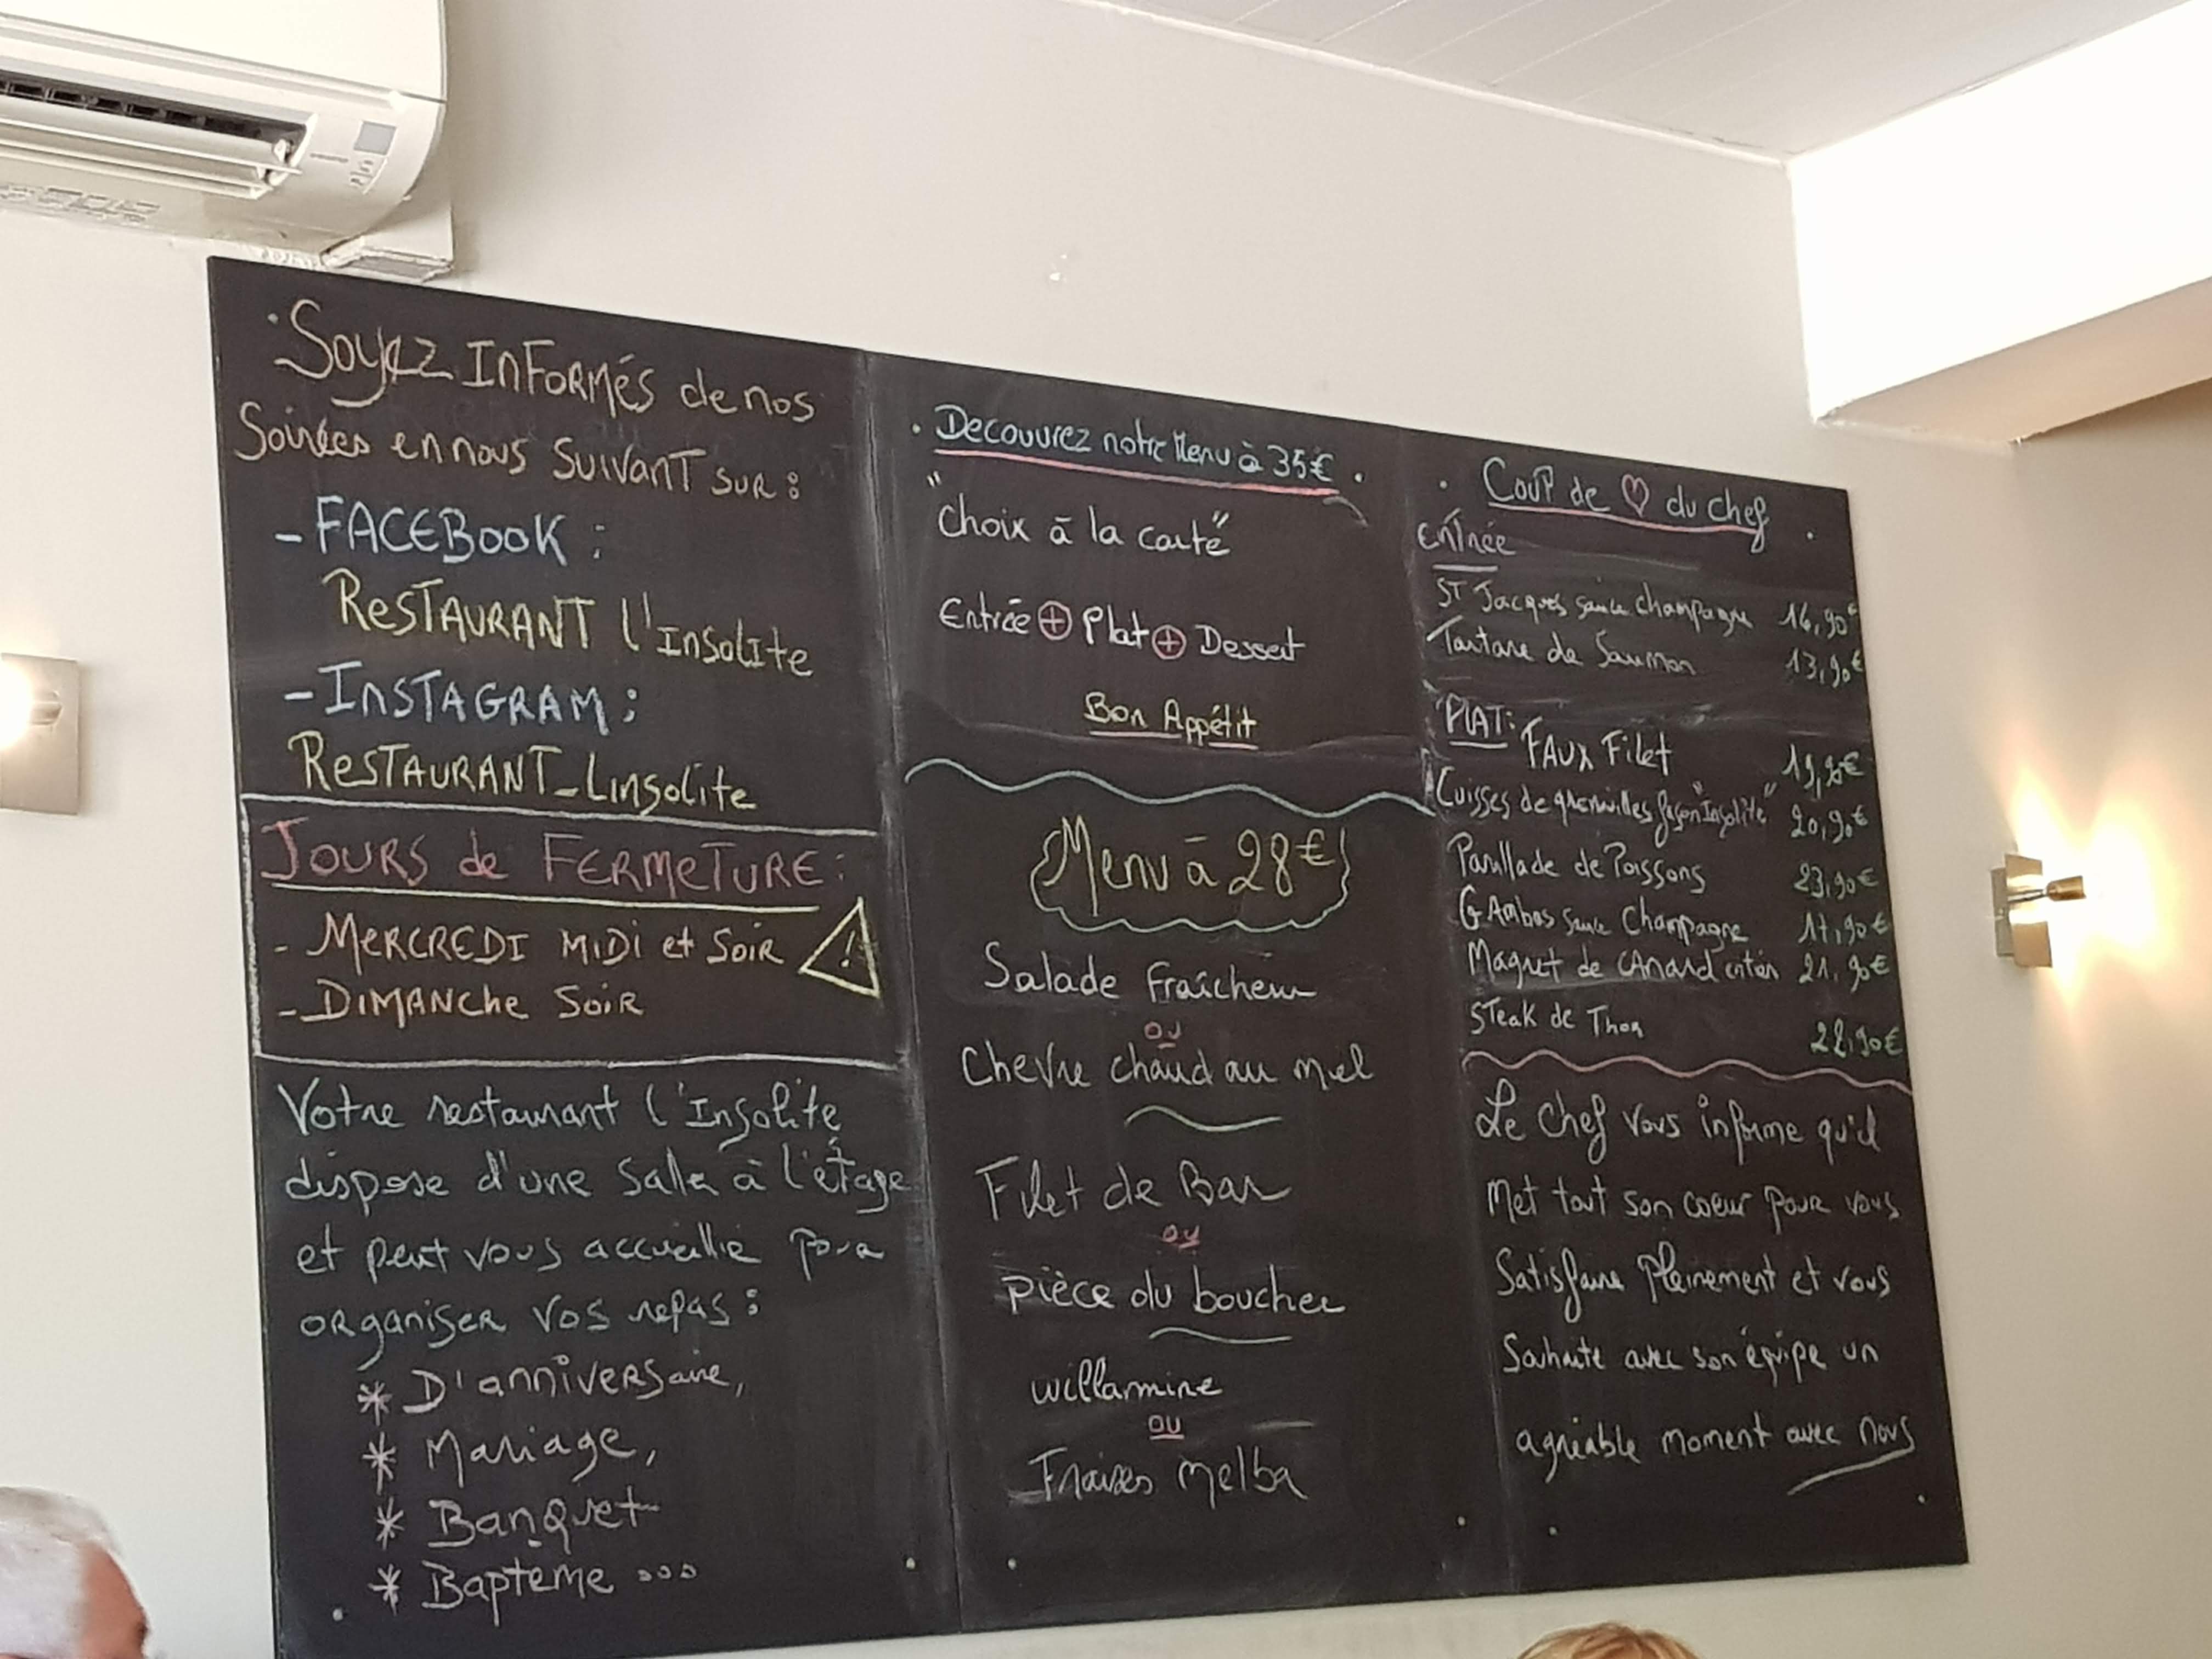 Soyez Informés de nos
Soirées en nous suivant sur :
- FACEBOOK :
RESTAURANT l'Insolite
- INSTAGRAM :
RESTAURANT_Linsolite
JOURS de FERMETURE :
- MERCREDI MIDI et SOIR
!
- DIMANCHE SOIR
Votre restaurant l'Insolite
dispose d'une salle à l'étage
et peut vous accueillir pour
organiser vos repas :
* D'anniversaire,
* Mariage,
* Banquet
* Bapteme ...
. Decouvrez notre Menu à 35€ .
"Choix à la carte"
Entrée + Plat + Dessert
Bon Appétit
Menu à 28€
Salade Fraîcheur
ou
Chevre chaud au miel
Filet de Bar
ou
pièce du boucher
willamine
ou
Fraises Melba
. Coup de ♡ du chef .
Entrée
ST Jacques sauce Champagne 16,90€
Tartare de Saumon 13,90€
PLAT :
Faux Filet 19,90€
Cuisses de grenouilles façon "Insolite" 20,90€
Parillade de Poissons 23,90€
GAmbas sauce Champagne 17,90€
Magret de CAnard entier 21,90€
STeak de Thon 22,90€
Le Chef vous informe qu'il
Met tout son coeur pour vous
Satisfaire Pleinement et vous
Souhaite avec son équipe un
agréable moment avec nous